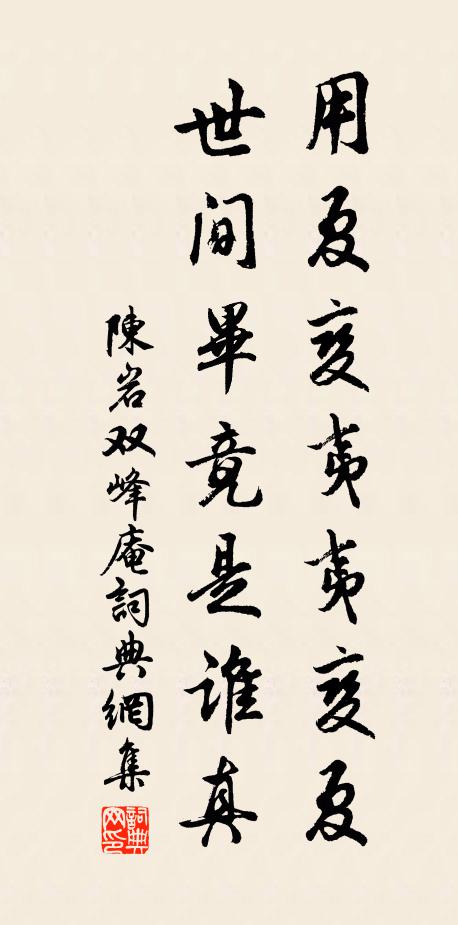 用夏变夷夷变夏
世间畢竟是誰真
陳岩双峰庵詞典網集
詞典网印